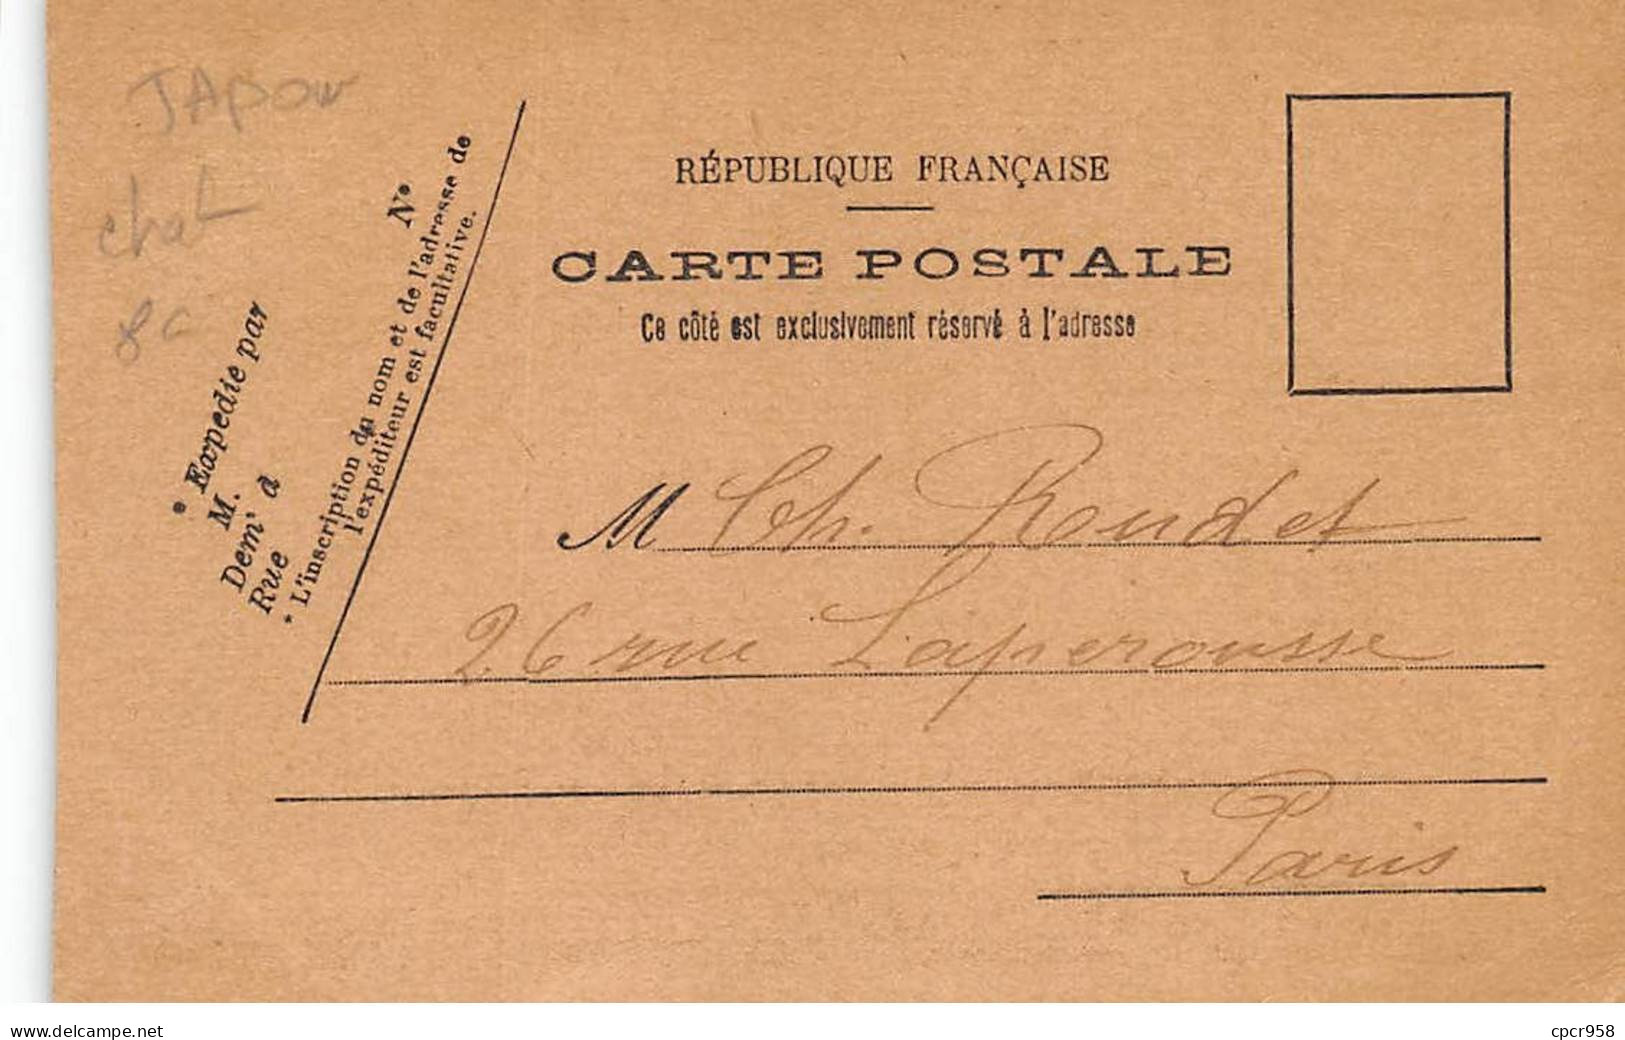 JAPON
chat
8c
RÉPUBLIQUE FRANÇAISE
CARTE POSTALE
Ce côté est exclusivement réservé à l'adresse
N°
* Expedie par
M.
Dem' a
Rue
* L'inscription du nom et de l'adresse de
l'expéditeur est facultative.
M Ch. Roudet
26 rue Laperousse
Paris
www.delcampe.net
cpcr958